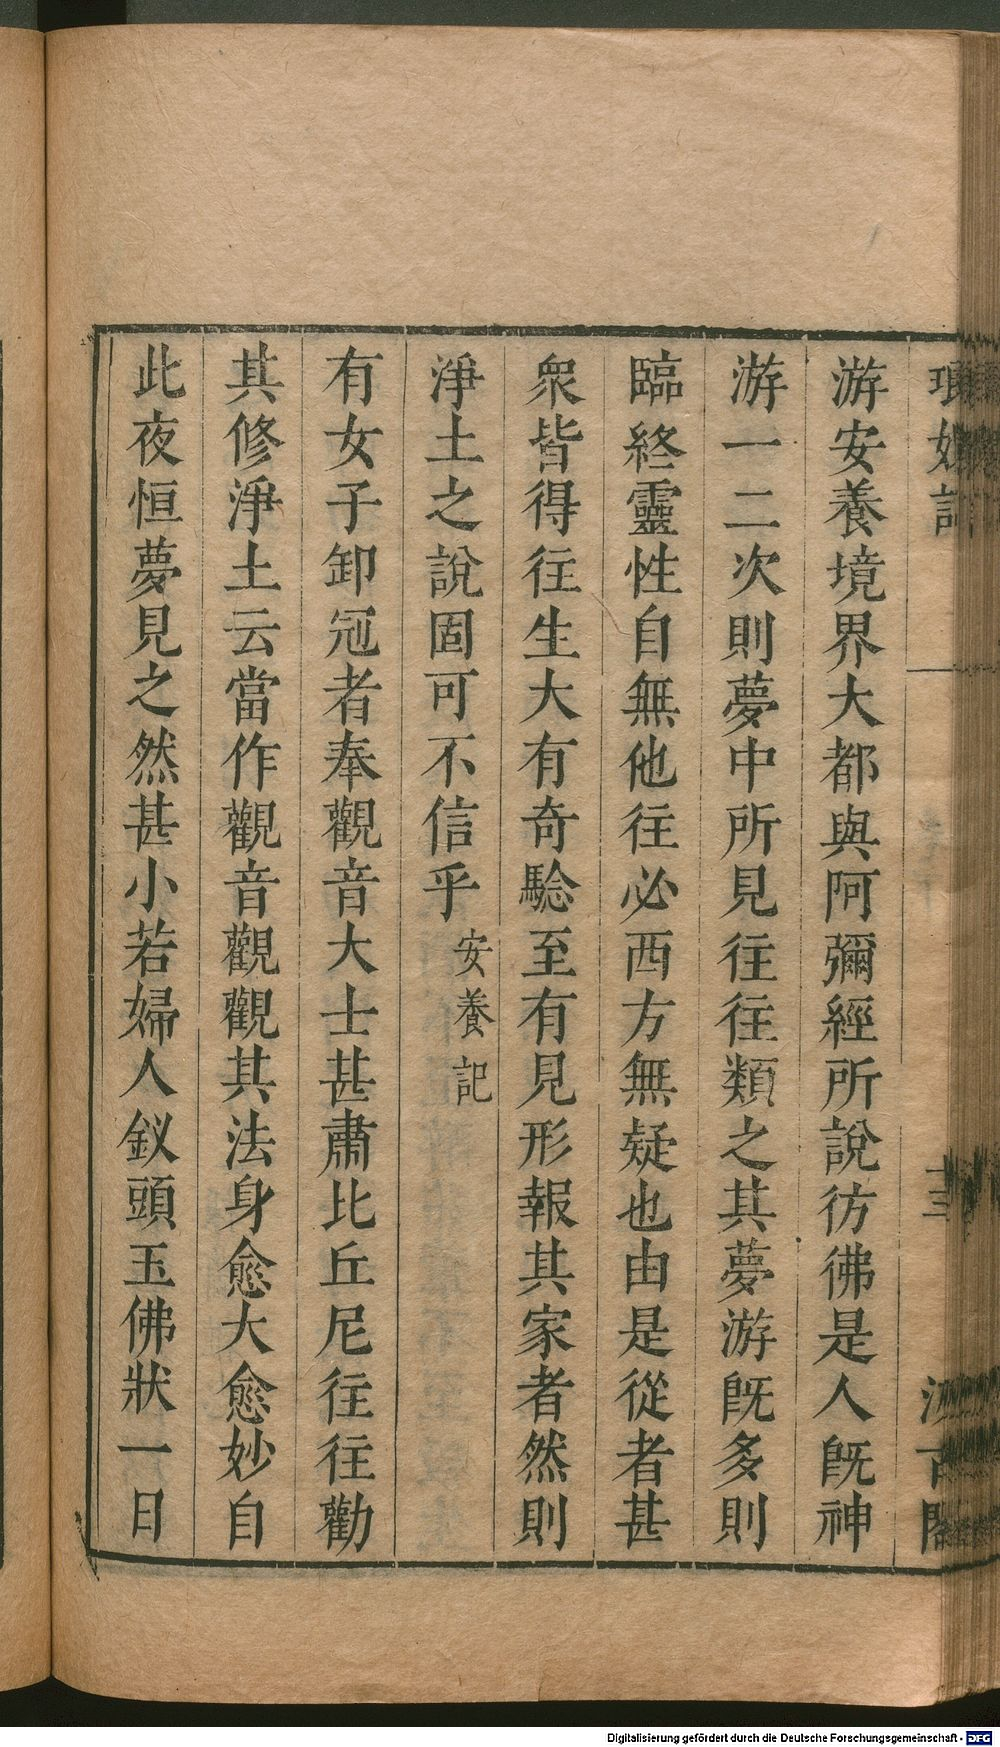 游安養境界大都與阿彌經所說彷彿是人旣神
游一二次則夢中所見往往類之其夢游旣多則
臨終靈性自無他往必西方無疑也由是從者甚
衆皆得往生大有奇騐至有見形報其家者然則
淨土之說固可不信乎安養記
有女子卸冠者奉觀音大士甚肅比丘尼往往勸
其修淨土云當作觀音觀觀其法身愈大愈妙自
此夜恒夢見之然甚小若婦人釵頭玉佛狀一日
Digitalisierung gefördert durch die Deutsche Forschungsgemeinschaft - DFG